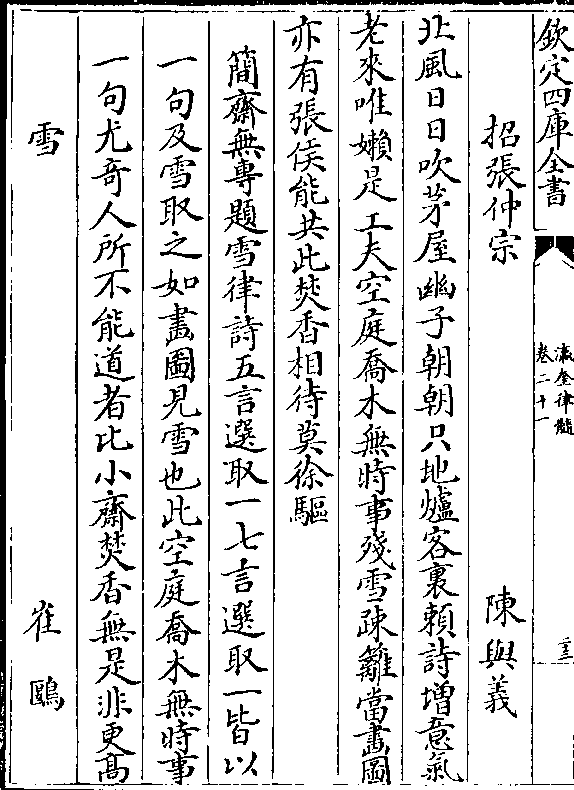 欽定四庫全書
瀛奎律髓
卷二十一
二三
招張仲宗 陳與義
北風日日吹茅屋幽子朝朝只地爐客裏賴詩增意氣
老來唯嬾是工夫空庭喬木無時事殘雪疎籬當畫圖
亦有張侯能共此焚香相待莫徐驅
簡齋無專題雪律詩五言選取一七言選取一皆以
一句及雪取之如畫圖見雪也此空庭喬木無時事
一句尤奇人所不能道者比小齋焚香無是非更髙
雪 崔鷗